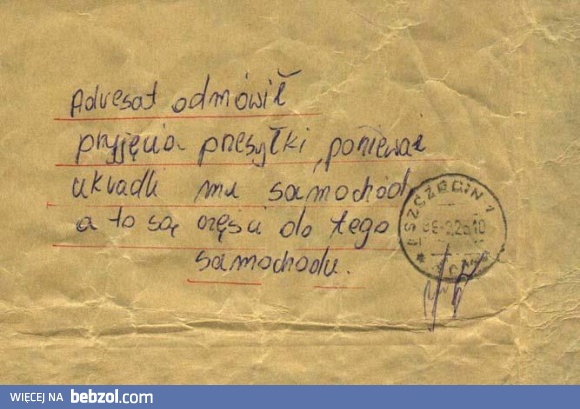 Adresat odmówił
przyjęcia przesyłki, ponieważ
ukradli mu samochód,
a to są części do tego
samochodu.
SZCZECIN 1
WIĘCEJ NA bebzol.com